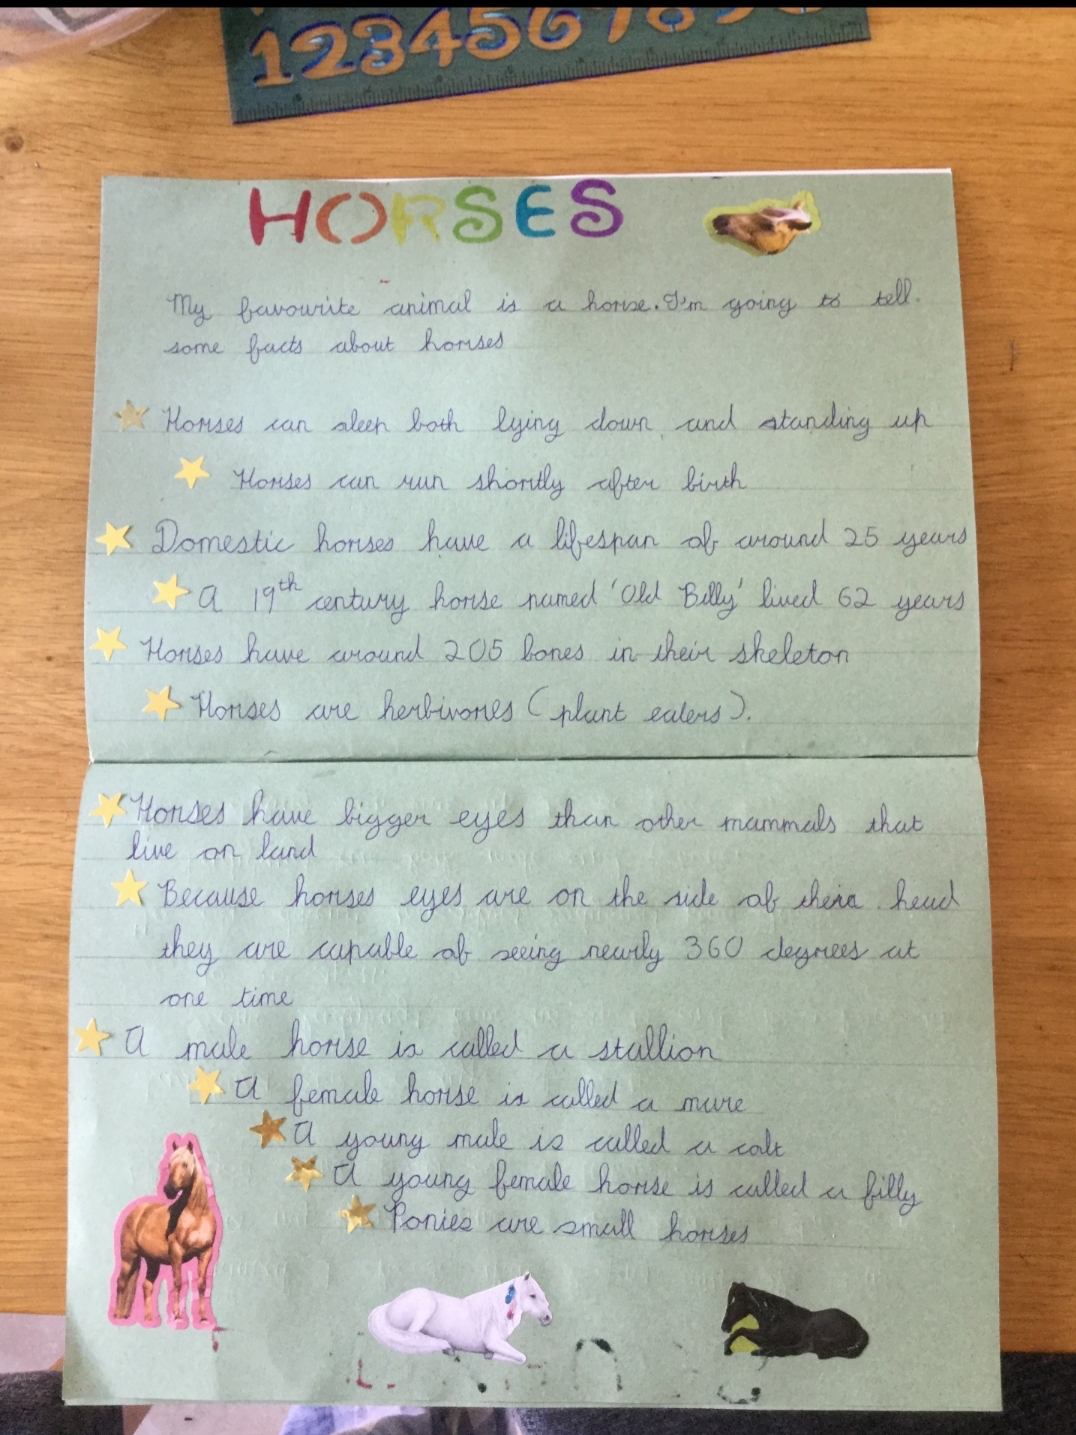 1234567890
HORSES
My favourite animal is a horse. I'm going to tell
some facts about horses
Horses can sleep both lying down and standing up
Horses can run shortly after birth
Domestic horses have a lifespan of around 25 years
A 19th century horse named 'Old Billy' lived 62 years
Horses have around 205 bones in their skeleton
Horses are herbivores (plant eaters).
Horses have bigger eyes than other mammals that
live on land
Because horses eyes are on the side of their head
they are capable of seeing nearly 360 degrees at
one time
A male horse is called a stallion
A female horse is called a mare
A young male is called a colt
A young female horse is called a filly
Ponies are small horses